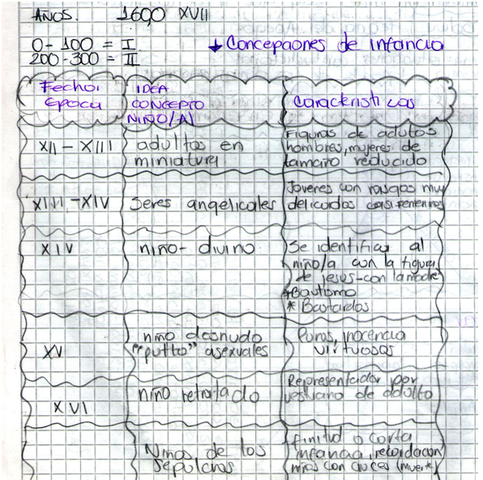 AÑOS. 1600 XVII
0-100 = I
200-300 = II
↓ Concepciones de infancia
Fecha/
Época
IDEA
CONCEPTO
NIÑO/A
Características
XII - XIII
adultos en
miniatura
Figuras de adultos
hombres, mujeres de
tamaño reducido
XIII - XIV
Seres angelicales
Jovenes con rasgos muy
delicados casi femeninos
XIV
niño - divino
Se identifica al
niño/a con la figura
de Jesús - con la madre
Bautismo
* Bastardos
XV
niño desnudo
"putto" asexuales
Puros, inocencia
virtuosos
XVI
niño retratado
Representados por
vestuario de adulto
Niños de los
sepulcros
finitud o corta
infancia,
niños con cruces (muerte)